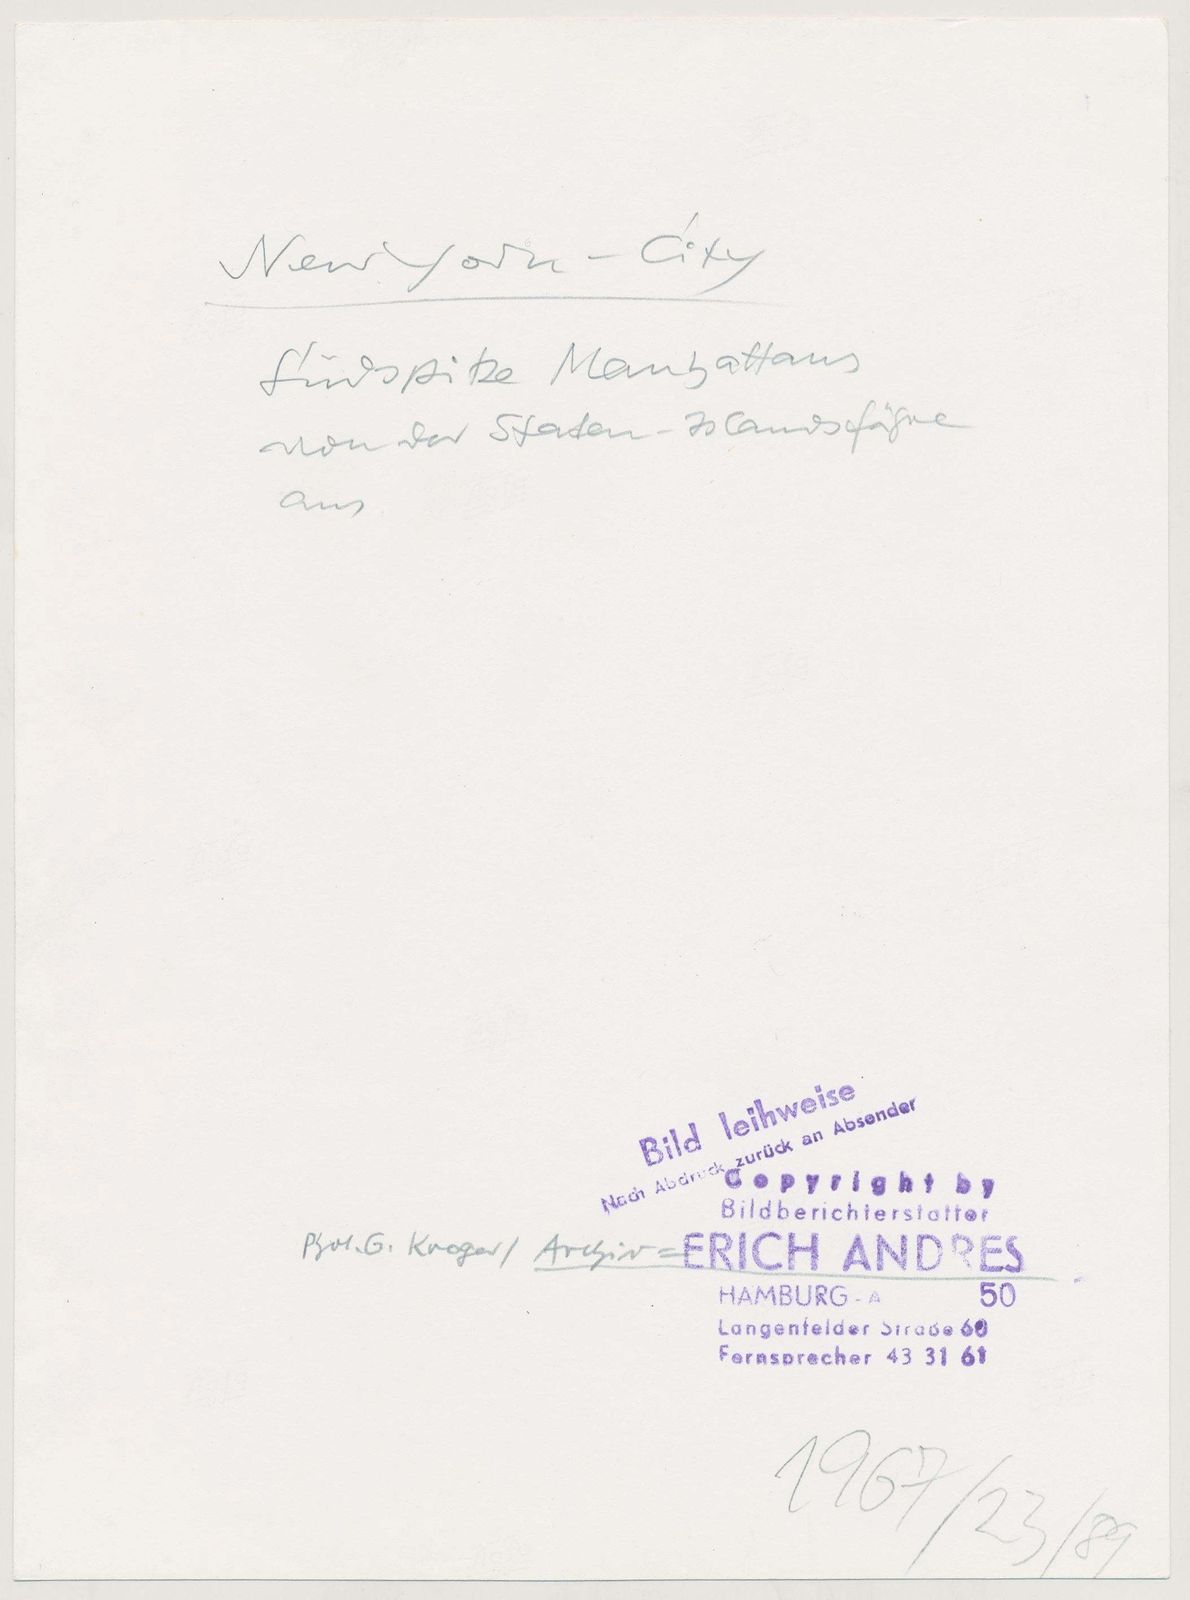 New York - City
Südspitze Manhattans
von der Staten-Islandsfähre
aus
Bild leihweise
Nach Abdruck zurück an Absender
Copyright by
Bildberichterstatter
G. Kroger / Archiv = ERICH ANDRES
HAMBURG - A 50
Langenfelder Straße 60
Fernsprecher 43 31 61
1967/23/89